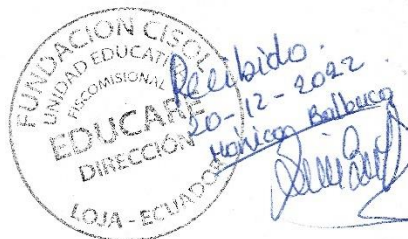 FUNDACION CISOL
UNIDAD EDUCATIVA
FISCOMISIONAL
EDUCARE
DIRECCIÓN
LOJA - ECUADOR
Recibido.
20-12-2022
Mónica